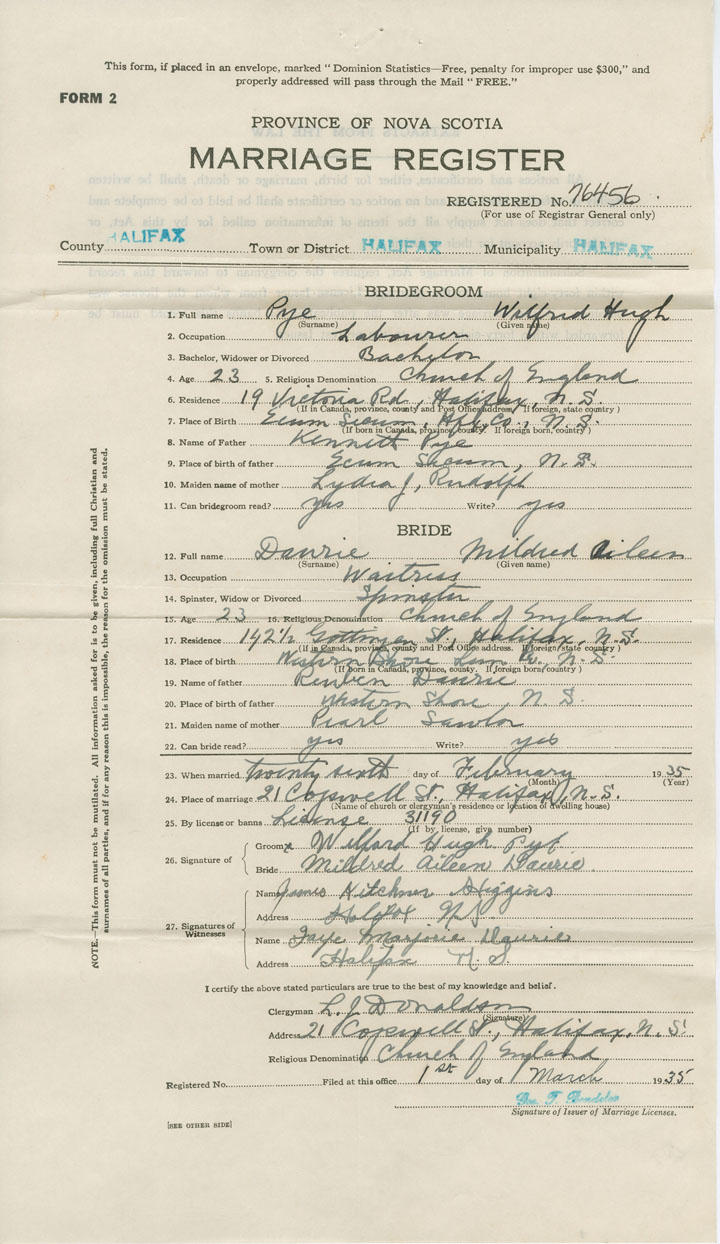 This form, if placed in an envelope, marked "Dominion Statistics—Free, penalty for improper use $300," and
properly addressed will pass through the Mail "FREE."
FORM 2
PROVINCE OF NOVA SCOTIA
MARRIAGE REGISTER
REGISTERED No. 76456
(For use of Registrar General only)
County HALIFAX Town or District HALIFAX Municipality HALIFAX
BRIDEGROOM
1. Full name Pye Wilfrid Hugh
(Surname) (Given name)
2. Occupation Labourer
3. Bachelor, Widower or Divorced Bachelor
4. Age 23 5. Religious Denomination Church of England
6. Residence 19 Victoria Rd., Halifax, N.S.
(If in Canada, province, county and Post Office address. If foreign, state country)
7. Place of Birth Ecum Secum, Hfx. Co., N.S.
(If born in Canada, province, county. If foreign born, country)
8. Name of Father Kenneth Pye
9. Place of birth of father Ecum Secum, N.S.
10. Maiden name of mother Lydia J. Rudolph
11. Can bridegroom read? yes Write? yes
BRIDE
12. Full name Daurie Mildred Aileen
(Surname) (Given name)
13. Occupation Waitress
14. Spinster, Widow or Divorced Spinster
15. Age 23 16. Religious Denomination Church of England
17. Residence 142½ Gottingen St., Halifax, N.S.
(If in Canada, province, county and Post Office address. If foreign, state country)
18. Place of birth Western Shore Lun. Co., N.S.
(If born in Canada, province, county. If foreign born, country)
19. Name of father Reuben Daurie
20. Place of birth of father Western Shore, N.S.
21. Maiden name of mother Pearl Sawlor
22. Can bride read? yes Write? yes
23. When married twenty sixth day of February 1935
(Month) (Year)
24. Place of marriage 21 Cogswell St., Halifax, N.S.
(Name of church or clergyman's residence or location of dwelling house)
25. By license or banns License 31190
(If by license, give number)
26. Signature of
Groom Wilford Hugh Pye
Bride Mildred Aileen Daurie
27. Signatures of Witnesses
Name James Kitchner Higgins
Address Halifax N.S.
Name Faye Marjorie Daurie
Address Halifax N.S.
I certify the above stated particulars are true to the best of my knowledge and belief.
Clergyman L. J. Donaldson
(Signature)
Address 21 Cogswell St., Halifax, N.S.
Religious Denomination Church of England
Registered No. Filed at this office 1st day of March 1935
Signature of Issuer of Marriage Licenses.
[SEE OTHER SIDE]
NOTE.—This form must not be mutilated. All information asked for is to be given, including full Christian and
surnames of all parties, and if for any reason this is impossible, the reason for the omission must be stated.